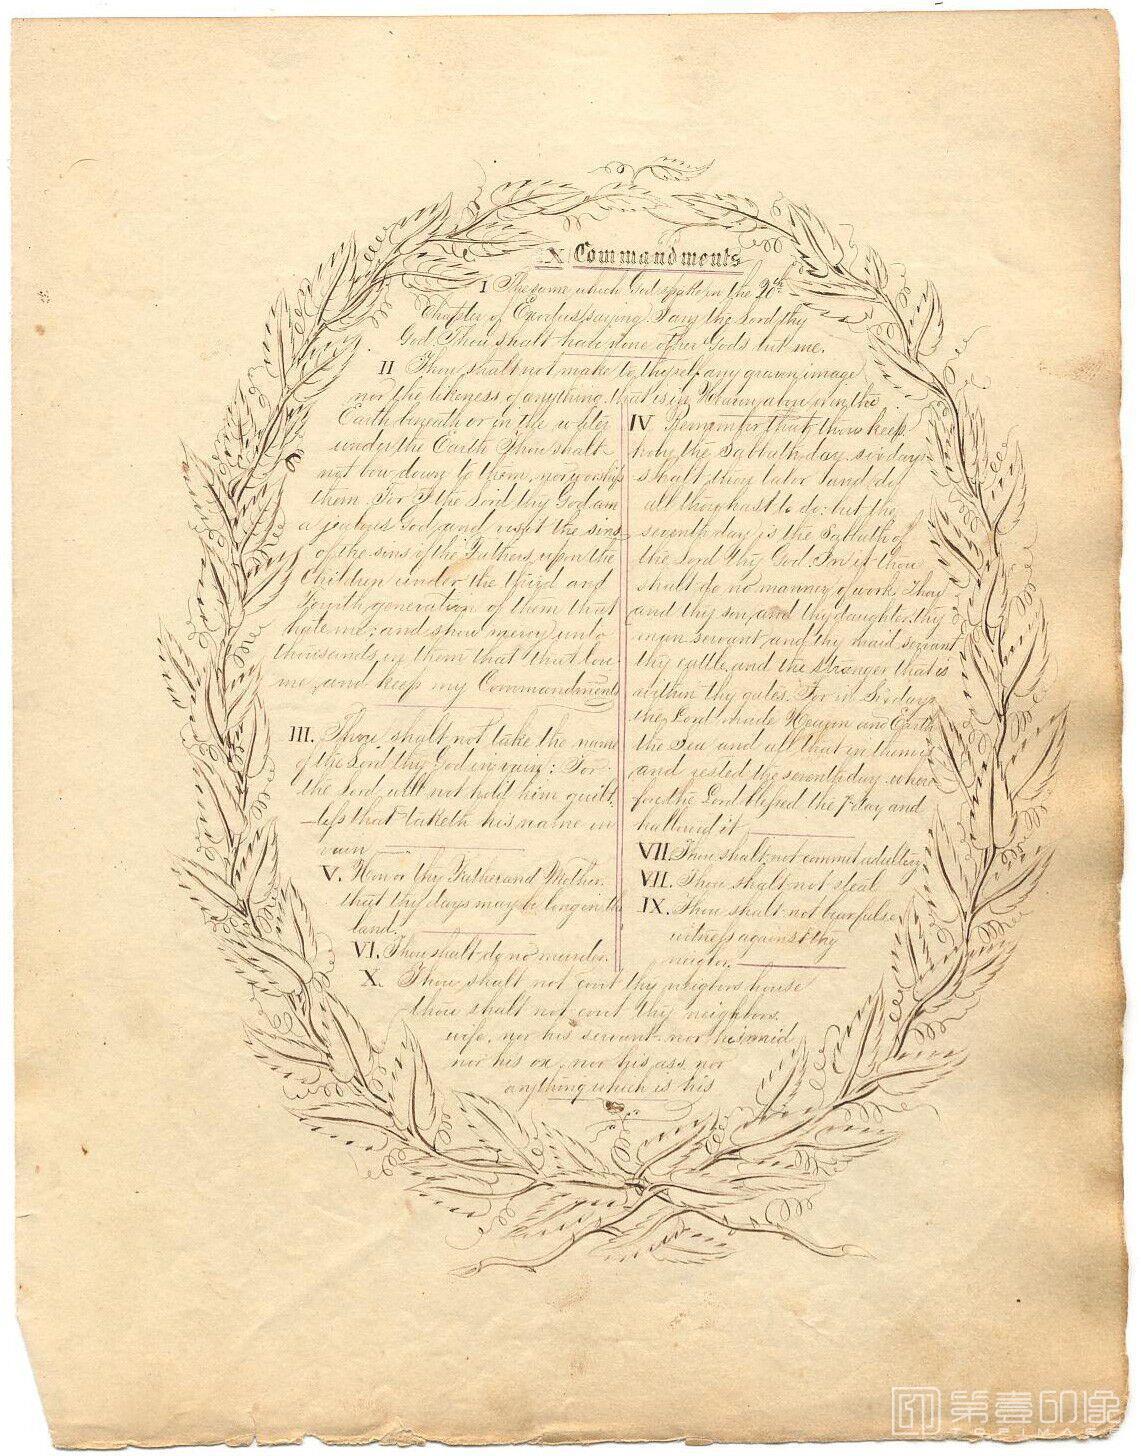 X Commandments
I The same which God spake in the 20th
Chapter of Exodus saying I am the Lord thy
God Thou shalt have none other Gods but me.
II Thou shalt not make to thyself any graven image
nor the likeness of anything that is in Heaven above or in the
Earth beneath or in the water
under the Earth Thou shalt
not bow down to them, nor worship
them. For I the Lord thy God am
a jealous God, and visit the sins
of the sins of the Fathers, upon the
Children under the third and
Fourth generation of them that
hate me; and show mercy unto
thousands in them that that love
me, and keep my Commandments
III. Thou shalt not take the name
of the Lord thy God in vain; For
the Lord will not hold him guilt
-less that taketh his name in
vain
IV Remember that thou keep
holy the Sabbath day. six days
shalt thou labor and do
all thou hast to do; but the
seventh day is the Sabbath of
the Lord thy God. In it thou
shalt do no manner of work, Thou
and thy son, and thy daughter, thy
man servant, and thy maid servant
thy cattle, and the Stranger that is
within thy gates. For in Six days
the Lord made Heaven and Earth
the Sea and all that in them is
and rested the seventh day where
fore the Lord blessed the 7th day and
hallowed it
V. Honor thy Father and Mother.
that thy days may be long in the
land.
VI. Thou shalt do no murder.
VII. Thou shalt not commit adultery
VII. Thou shalt not steal
IX. Thou shalt not bear false
witness against thy
neigbor.
X. Thou shalt not covit thy neigbors house
thou shalt not covit thy neighbors
wife, nor his servant nor his maid
nor his ox, nor his ass, nor
anything which is his
第壹印像